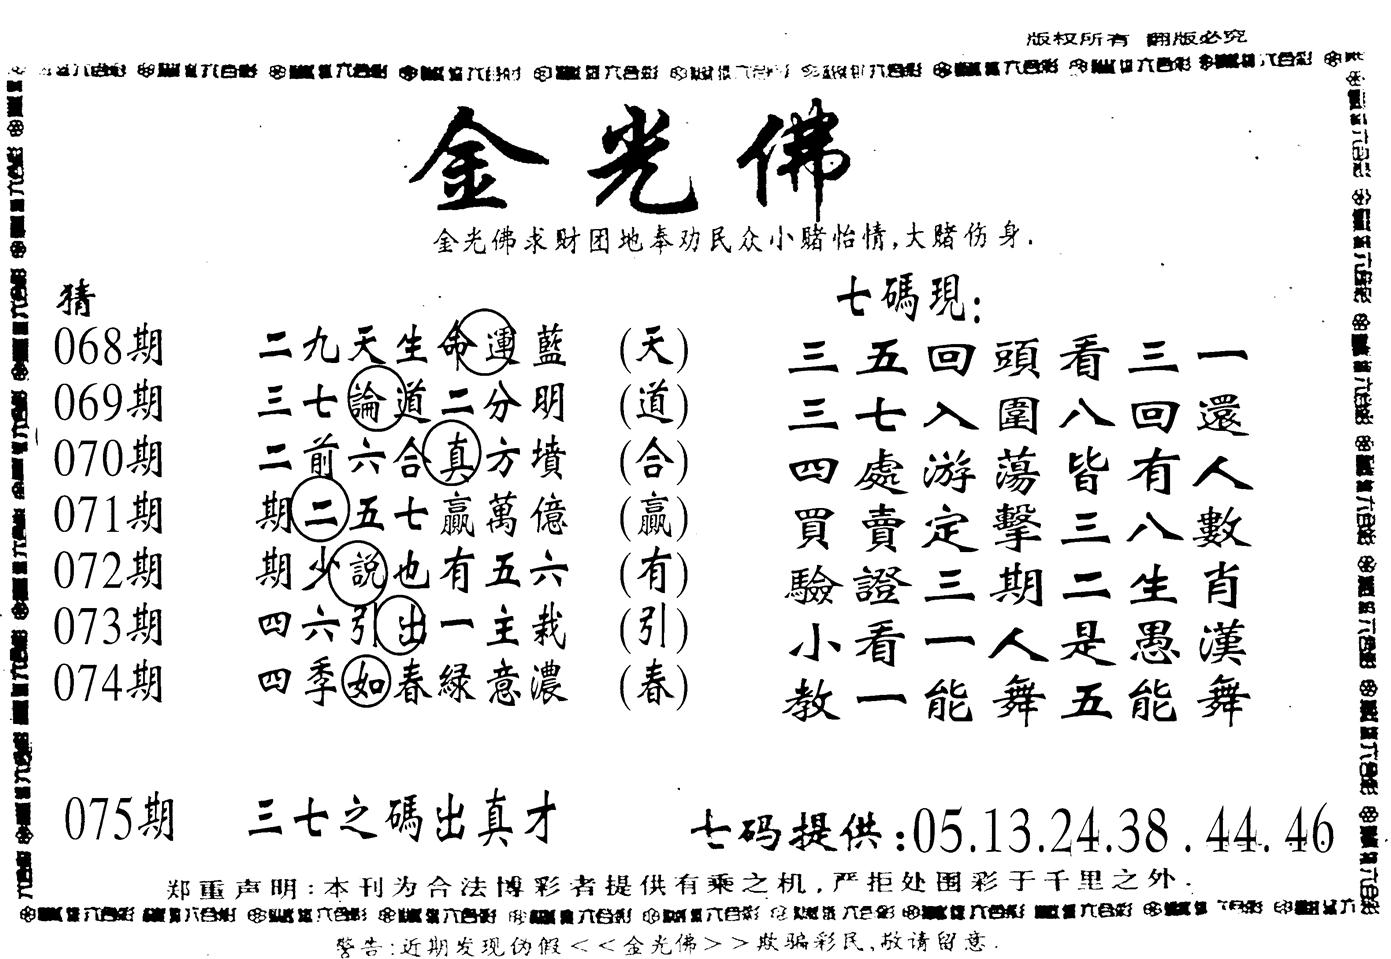 版权所有 翻版必究
金光佛
金光佛求财团地奉劝民众小赌怡情,大赌伤身.
猜
068期 二九天生命運藍 (天)
069期 三七論道二分明 (道)
070期 二前六合真方墳 (合)
071期 期二五七贏萬億 (贏)
072期 期少説也有五六 (有)
073期 四六引出一主栽 (引)
074期 四季如春緑意濃 (春)
七碼現:
三五回頭看三一
三七入圍八回還
四處游蕩皆有人
買賣定擊三八數
驗證三期二生肖
小看一人是愚漢
教一能舞五能舞
075期 三七之碼出真才
七码提供:05.13.24.38.44.46
郑重声明:本刊为合法博彩者提供有乘之机,严拒处围彩于千里之外.
警告:近期发现伪假<<金光佛>>欺骗彩民,敬请留意.